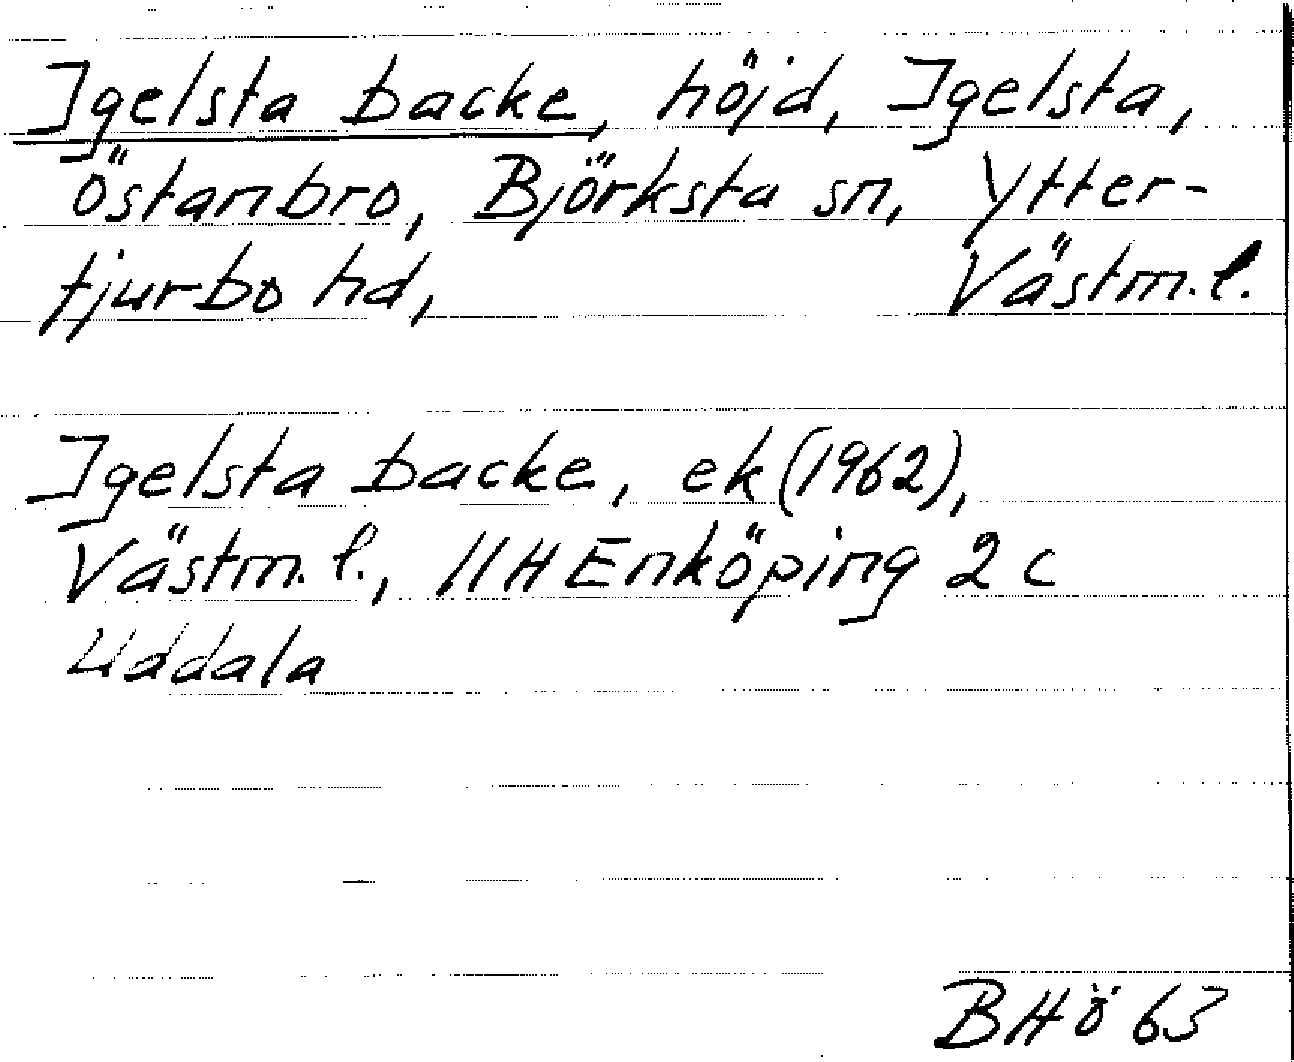 Igelsta backe, höjd, Igelsta,
Östanbro, Björksta sn, Ytter-
tjurbo hd, Västm.l.
Igelsta backe, ek (1962),
Västm.l., 11H Enköping 2c
Uddala
BHö 63